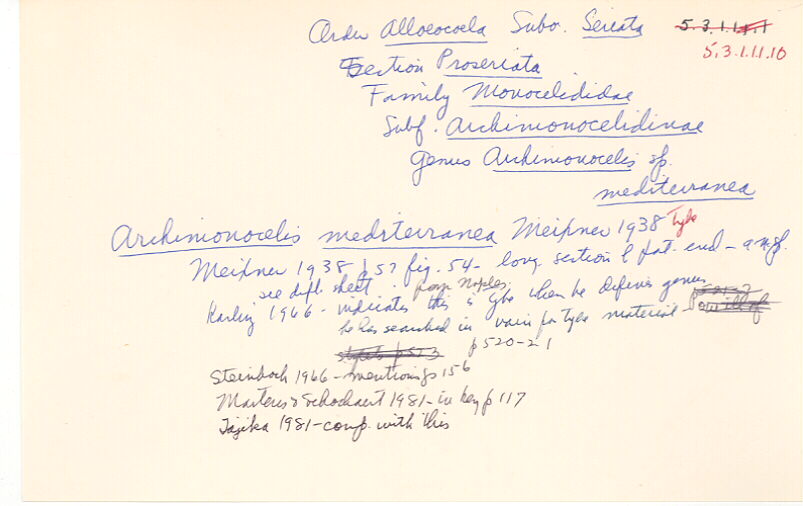 Order Alloeocoela Subo. Seriata
5.3.1.11.10
Section Proseriata
Family Monocelididae
Subf. Archimonocelidinae
genus Archimonocelis sp.
mediterranea
Archimonocelis mediterranea Meixner 1938 Type
Meixner 1938 p57 fig. 54 - long. section of post. end -
see dupl. sheet from Naples
Karling 1966 - indicates this is type when he defines genus
he has searched in vain for type material -
p520-21
Steinbock 1966 - mentionings 156
Martens & Schockaert 1981 - in key p 117
Tajika 1981 - comp. with this